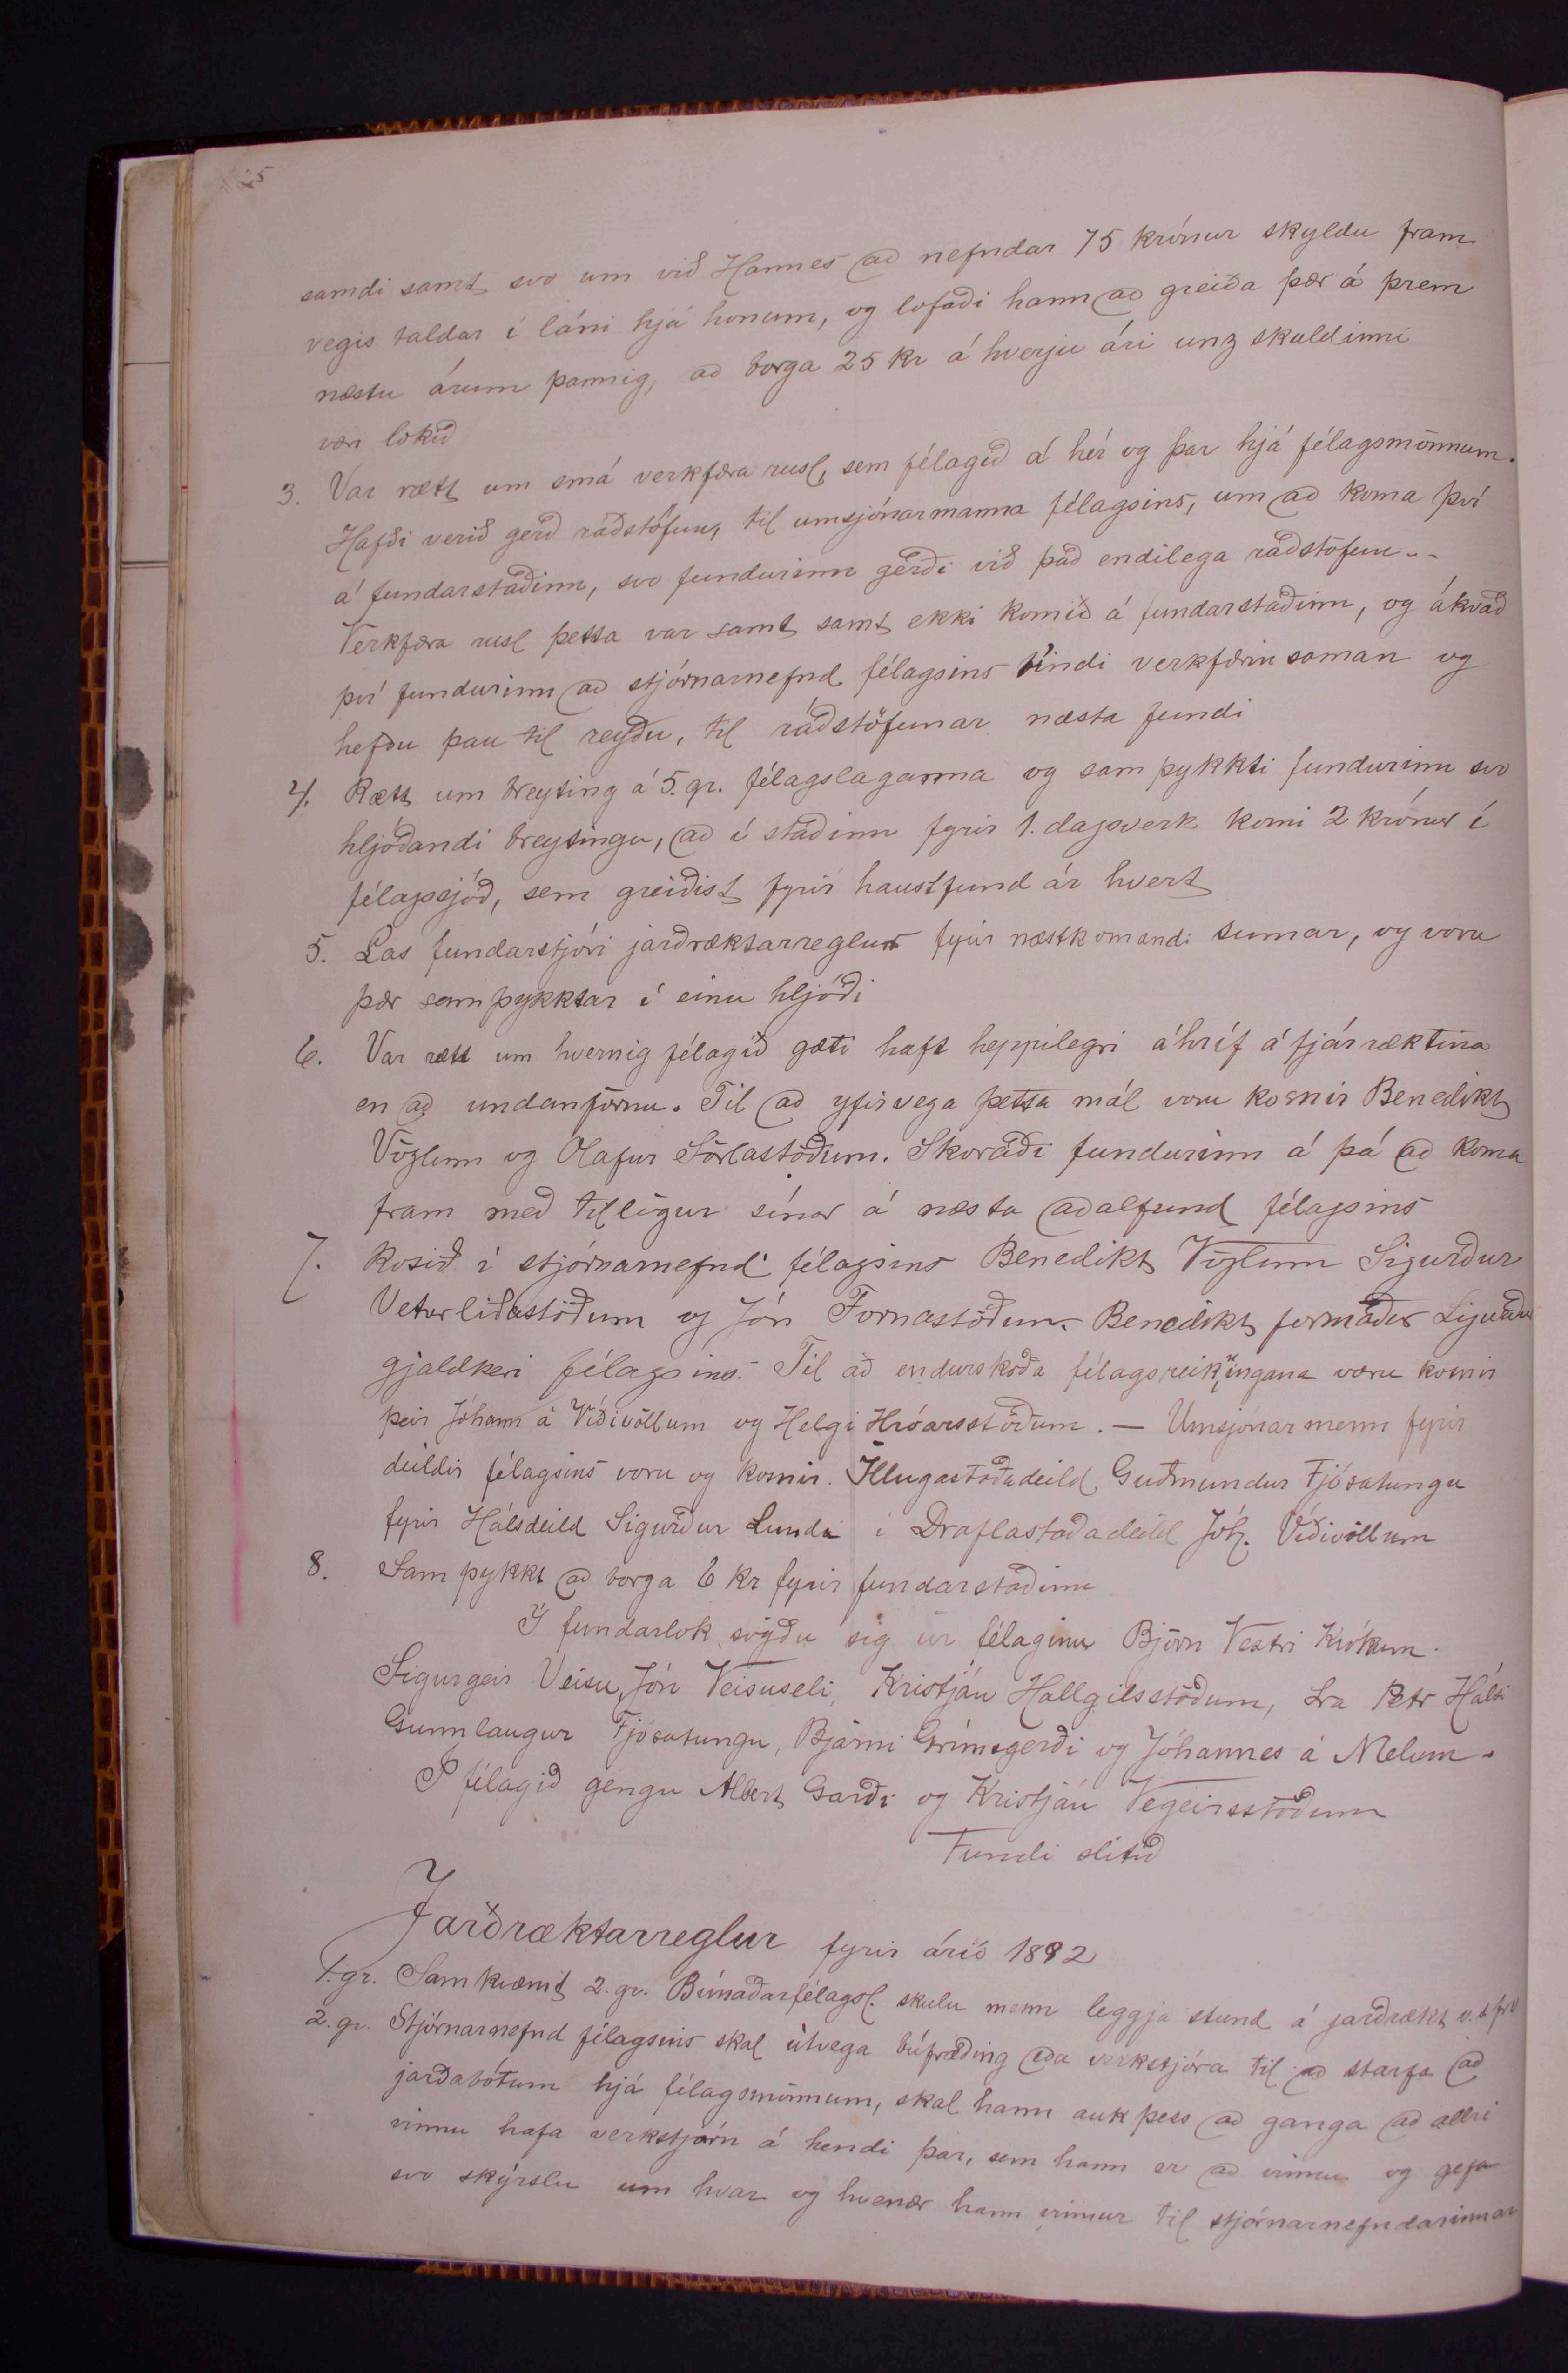 25
samdi samt svo um við Hannes að nefndar 75 krónur skyldu fram
vegis taldar í láni hjá honum, og lofaði hann að greiða þær á þrem
næstu árum þannig, að borga 25 kr á hverju ári unz skuldinni
væri lokið
3. Var rætt um smá verkfæra rusl, sem félagið á hér og þar hjá félagsmönnum.
Hafði verið gerð ráðstöfun, til umsjónarmanna félagsins, um að koma því
á fundarstaðinn, svo fundurinn gerði við það endilega ráðstöfun..
Verkfæra rusl þetta var samt samt ekki komið á fundarstaðinn, og ákvað
því fundurinn að stjórnarnefnd félagsins tíndi verkfærin saman og
hefðu þau til reyðu, til ráðstöfunar næsta fundi
4. Rætt um breyting á 5. gr. félagslaganna og samþykkti fundurinn svo
hljóðandi breytingu, að í staðinn fyrir 1. dagsverk komi 2 krónur í
félagssjóð, sem greiðist fyrir haustfund ár hvert
5. Las fundarstjóri jarðræktarreglur fyrir næstkomandi sumar, og voru
þær samþykktar í einu hljóði
6. Var rætt um hvernig félagið gæti haft heppilegri áhríf á fjárræktina
en að undanförnu. Til að yfirvega þetta mál voru kosnir Benedikt
Vöglum og Ólafur Sörlastöðum. Skoraði fundurinn á þá að koma
fram með tillögur sínar á næsta aðalfund félagsins
7. Kosið í stjórnarnefnd félagsins Benedikt Vöglum Sigurður
Veturliðastöðum og Jón Fornastöðum. Benedikt formaður Sigurður
gjaldkeri félagsins. Til að endurskoða félagsreikningana voru kosnir
þeir Jóhann á Víðivöllum og Helgi Hróarsstöðum. — Umsjónarmenn fyrir
deildir félagsins voru og kosnir. Illugastaðadeild Guðmundur Fjósatungu
fyrir Hálsdeild Sigurður Lundi í Draflastaðadeild Jóh. Víðivöllum
8. Samþykkt að borga 6 kr fyrir fundarstaðinn
Í fundarlok sögðu sig úr félaginu Björn Vestri Krókum.
Sigurgeir Veisu, Jón Veisuseli, Kristján Hallgilsstöðum, sra Petr Hálsi
Gunnlaugur Fjósatungu, Bjarni Grímsgerði og Jóhannes á Melum.
Í félagið gengu Albert Garði og Kristján Vegeirsstöðum
Fundi slitið
Jarðræktarreglur fyrir árið 1892
1. gr. Samkvæmt 2. gr. Búnaðarfélagsl. skulu menn leggja stund á jarðrækt v.s frv
2. gr. Stjórnarnefnd félagsins skal útvega búfræðing eða verkstjóra til að starfa að
jarðabótum hjá félagsmönnum, skal hann auk þess að ganga að allri
vinnu hafa verkstjórn á hendi þar, sem hann er að vinnu og gefa
svo skýrslu um hvar og hvenær hann vinnur til stjórnarnefndarinnar